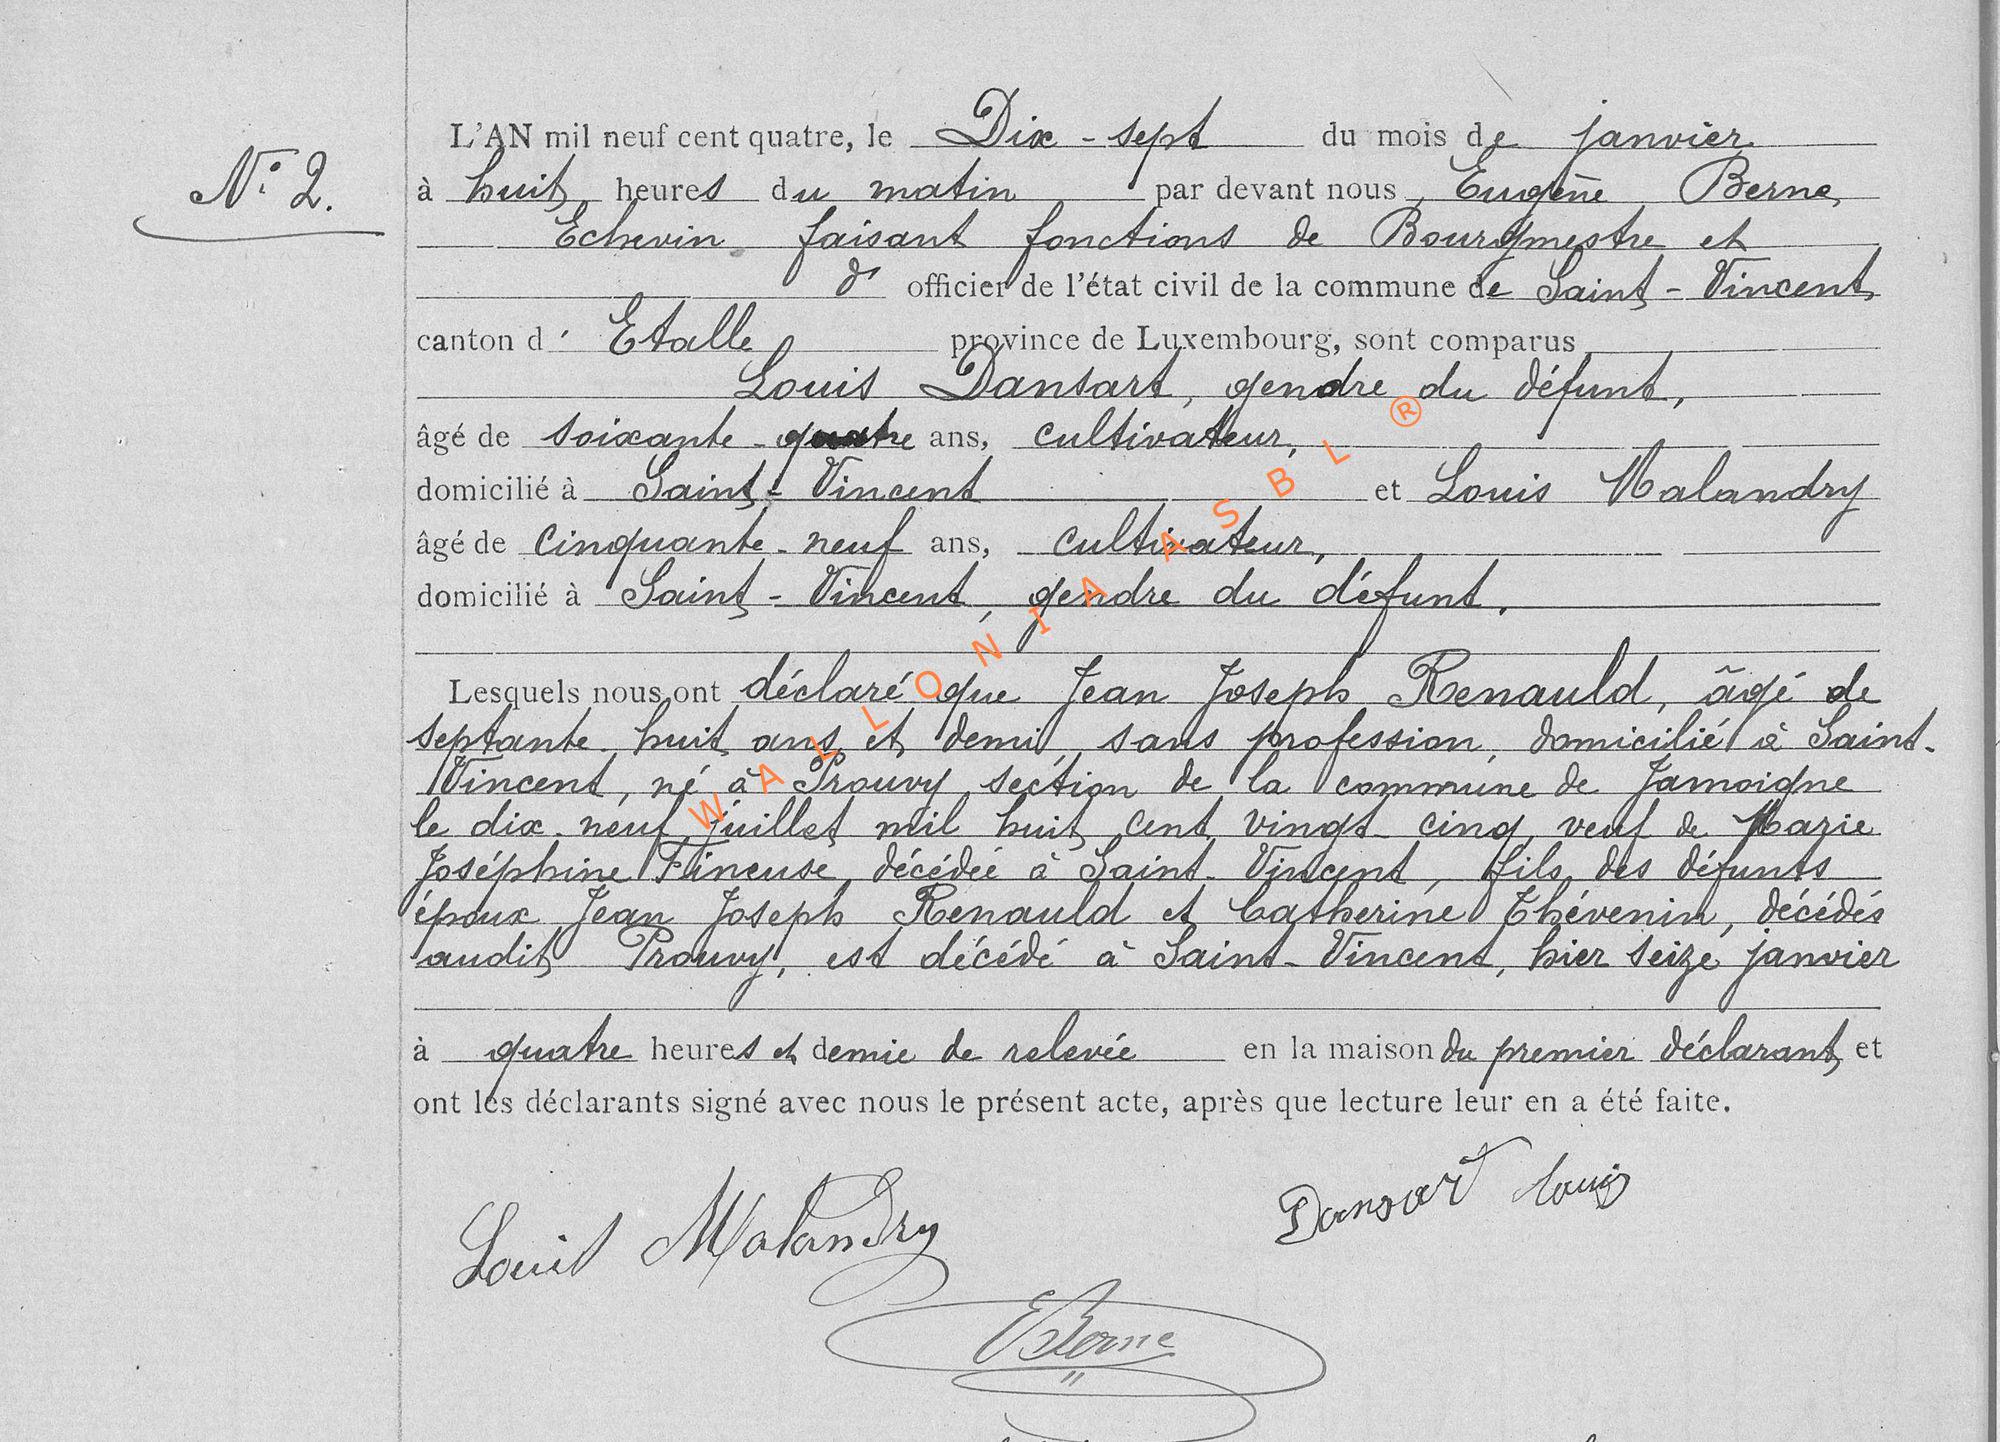 N° 2.
L'AN mil neuf cent quatre, le Dix-sept du mois de janvier
à huit heures du matin par devant nous Eugène Berne,
Echevin faisant fonctions de Bourgmestre et
d' officier de l'état civil de la commune de Saint-Vincent,
canton d' Etalle province de Luxembourg, sont comparus
Louis Dansart, gendre du défunt,
âgé de soixante-quatre ans, cultivateur,
domicilié à Saint-Vincent et Louis Malandry
âgé de cinquante-neuf ans, cultivateur,
domicilié à Saint-Vincent, gendre du défunt.
Lesquels nous ont déclaré que Jean Joseph Renauld, âgé de
septante-huit ans et demi, sans profession, domicilié à Saint-
Vincent, né à Prouvy section de la commune de Jamoigne
le dix-neuf juillet mil huit cent vingt-cinq, veuf de Marie
Joséphine Fineuse, décédée à Saint-Vincent, fils des défunts
époux Jean Joseph Renauld et Catherine Thévenin, décédés
audit Prouvy, est décédé à Saint-Vincent, hier seize janvier
à quatre heures et demie de relevée en la maison du premier déclarant, et
ont les déclarants signé avec nous le présent acte, après que lecture leur en a été faite.
Louis Malandry Dansart Louis
EBerne
WALLONIA ASBL ®